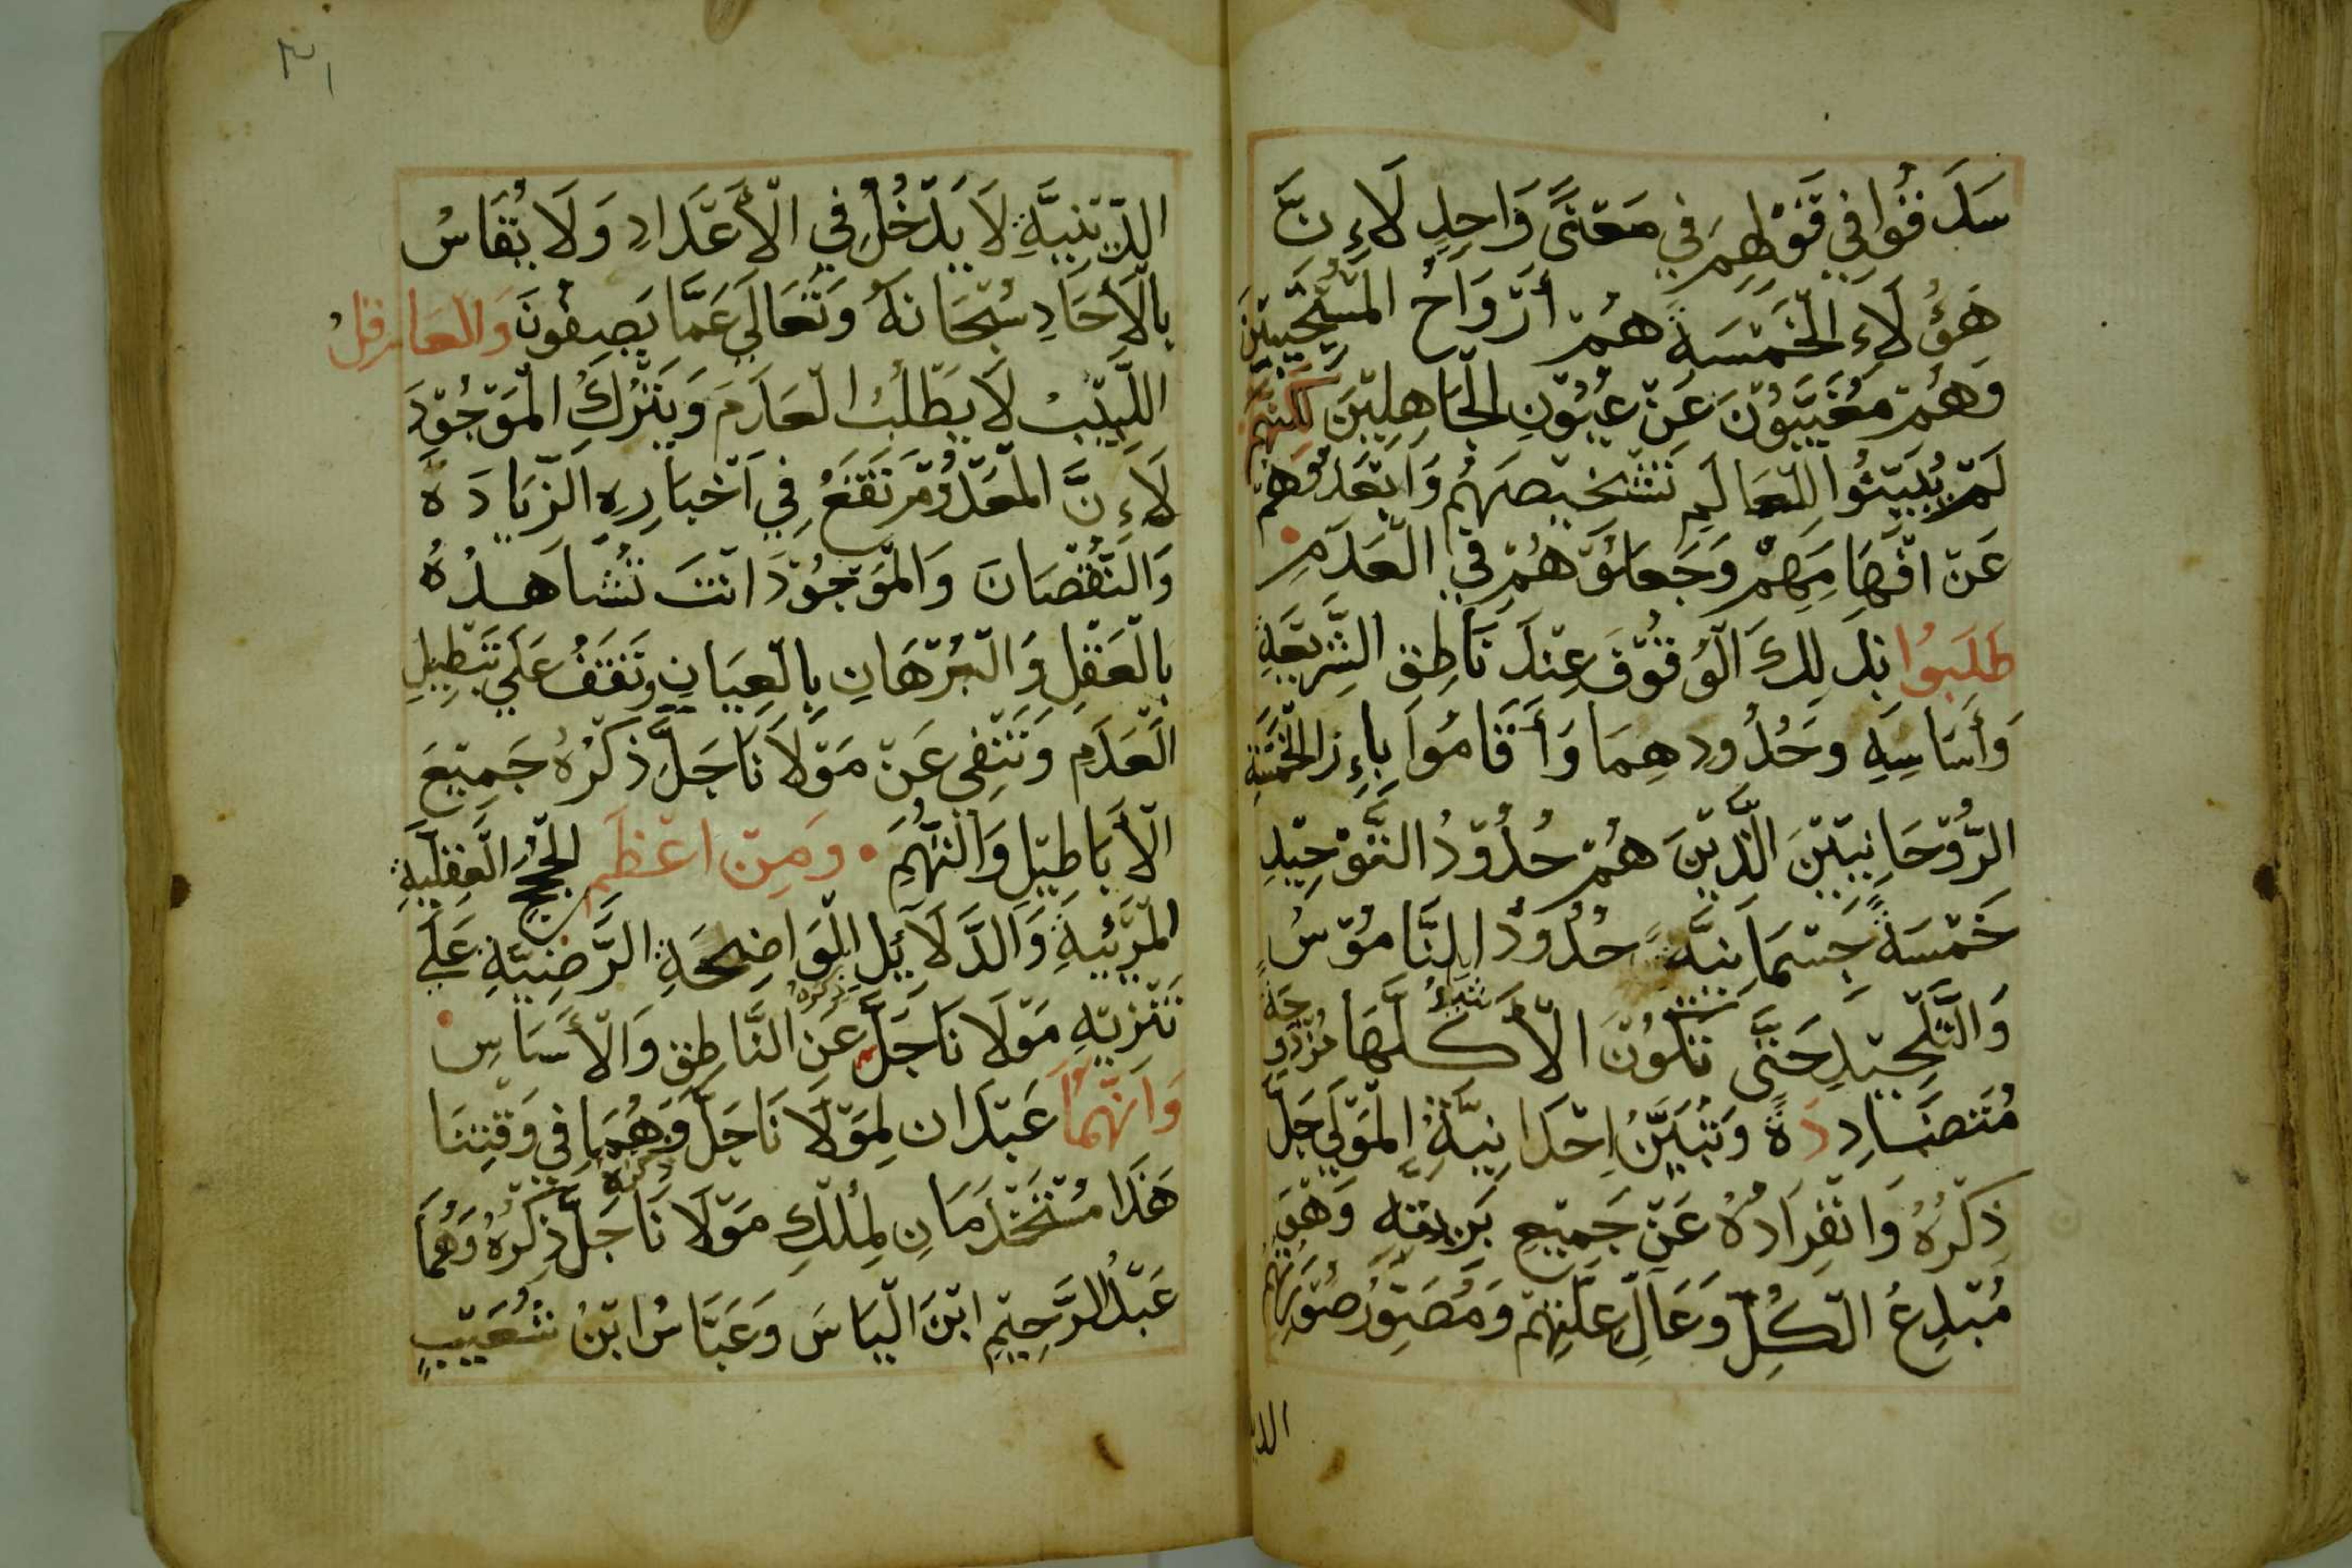 سَدَقُوا فِي قَوْلِهِمْ فِي مَعْنًى وَاحِدٍ لَاءِنَّ
هَؤُلَاءِ الْخَمْسَةِ هُمْ أَرْوَاحُ الْمُسْتَجِيبِيْنَ
وَهُمْ مُغَيَّبُوْنَ عَنْ عُيُوْنِ الْجَاهِلِيْنَ لَكِنَّهُمْ
لَمْ يُبَيِّنُوا لِلْعَالَمِ تَشْخِيْصَهُمْ وَابْعَدُوْهُمْ
عَنْ افْهَامِهِمْ وَجَعَلُوْهُمْ فِي الْعَدَمِ
طَلَبُوا بِذَلِكَ الْوُقُوْفَ عِنْدَ نَاطِقِ الشَّرِيْعَةِ
وَأَسَاسِهِ وَحُدُودِهِمَا وَأَقَامُوا بِإِزَا الْخَمْسَةِ
الرُّوْحَانِيِّيْنَ الَّذِيْنَ هُمْ حُدُوْدُ التَّوْحِيْدِ
خَمْسَةً جِسْمَانِيَّةً حُدُوْدُ النَّامُوْسِ
وَالتَّلْحِيْدِ حَتَّى تَكُوْنَ الْأَشْيَاءُ كُلَّهَا مُزْدَوِجَةً
مُتَضَادِدَةً وَتُبَيَّنُ اِحْدَانِيَّةُ الْمَوْلَى جَلَّ
ذِكْرُهُ وَانْفِرَادُهُ عَنْ جَمِيْعِ بَرِيَّتِهِ وَهُوَ
مُبْدِعُ الْكُلِّ وَعَالِّ عِلَّتِهِمْ وَمُصَوِّرُ صُوَرِهِمْ
الد
٣١
الدِّيْنِيَّةِ لَا يَدْخُلُ فِي الْأَعْدَادِ وَلَا يُقَاسُ
بِالْأَحَادِ سُبْحَانَهُ وَتَعَالَى عَمَّا يَصِفُونَ وَالْعَاقِلُ
اللَّبِيْبْ لَا يَطْلُبُ الْعَدَمَ وَيَتْرُكُ الْمَوْجُوْدَ
لَاءِنَّ الْمَعْدُوْمَ تَقَعُ فِي اَخْبَارِهِ الزِّيَادَةُ
وَالنُّقْصَانَ وَالْمَوْجُوْدَ انْتَ تُشَاهِدُهُ
بِالْعَقْلِ وَالْبُرْهَانِ بِالْعِيَانِ وَتَقِفُ عَلَى تَبْطِيْلِ
الْعَدَمِ وَتَنْفِي عَنْ مَوْلَانَا جَلَّ ذِكْرُهُ جَمِيْعَ
الْأَبَاطِيْلِ وَالتُّهَمِ ۰ وَمِنْ اعْظَمِ الْحُجَجِ الْعَقْلِيَّةِ
الْمَرْئِيَّةِ وَالدَّلَائِلِ الْوَاضِحَةِ الرَّضِيَّةِ عَلَى
تَنْزِيْهِ مَوْلَانَا جَلَّ ذِكْرُهُ عَنِ النَّاطِقِ وَالْأَسَاسِ
وَانَّهُمَا عَبْدَانِ لِمَوْلَانَا جَلَّ ذِكْرُهُ وَهُمَا فِي وَقْتِنَا
هَذَا مُسْتَخْدَمَانِ لِمُلْكِ مَوْلَانَا جَلَّ ذِكْرُهُ وَهُمَا
عَبْدُ الرَّحِيْمِ ابْنَ الْيَاسَ وَعَبَّاسُ ابْنُ شُعَيْبٍ